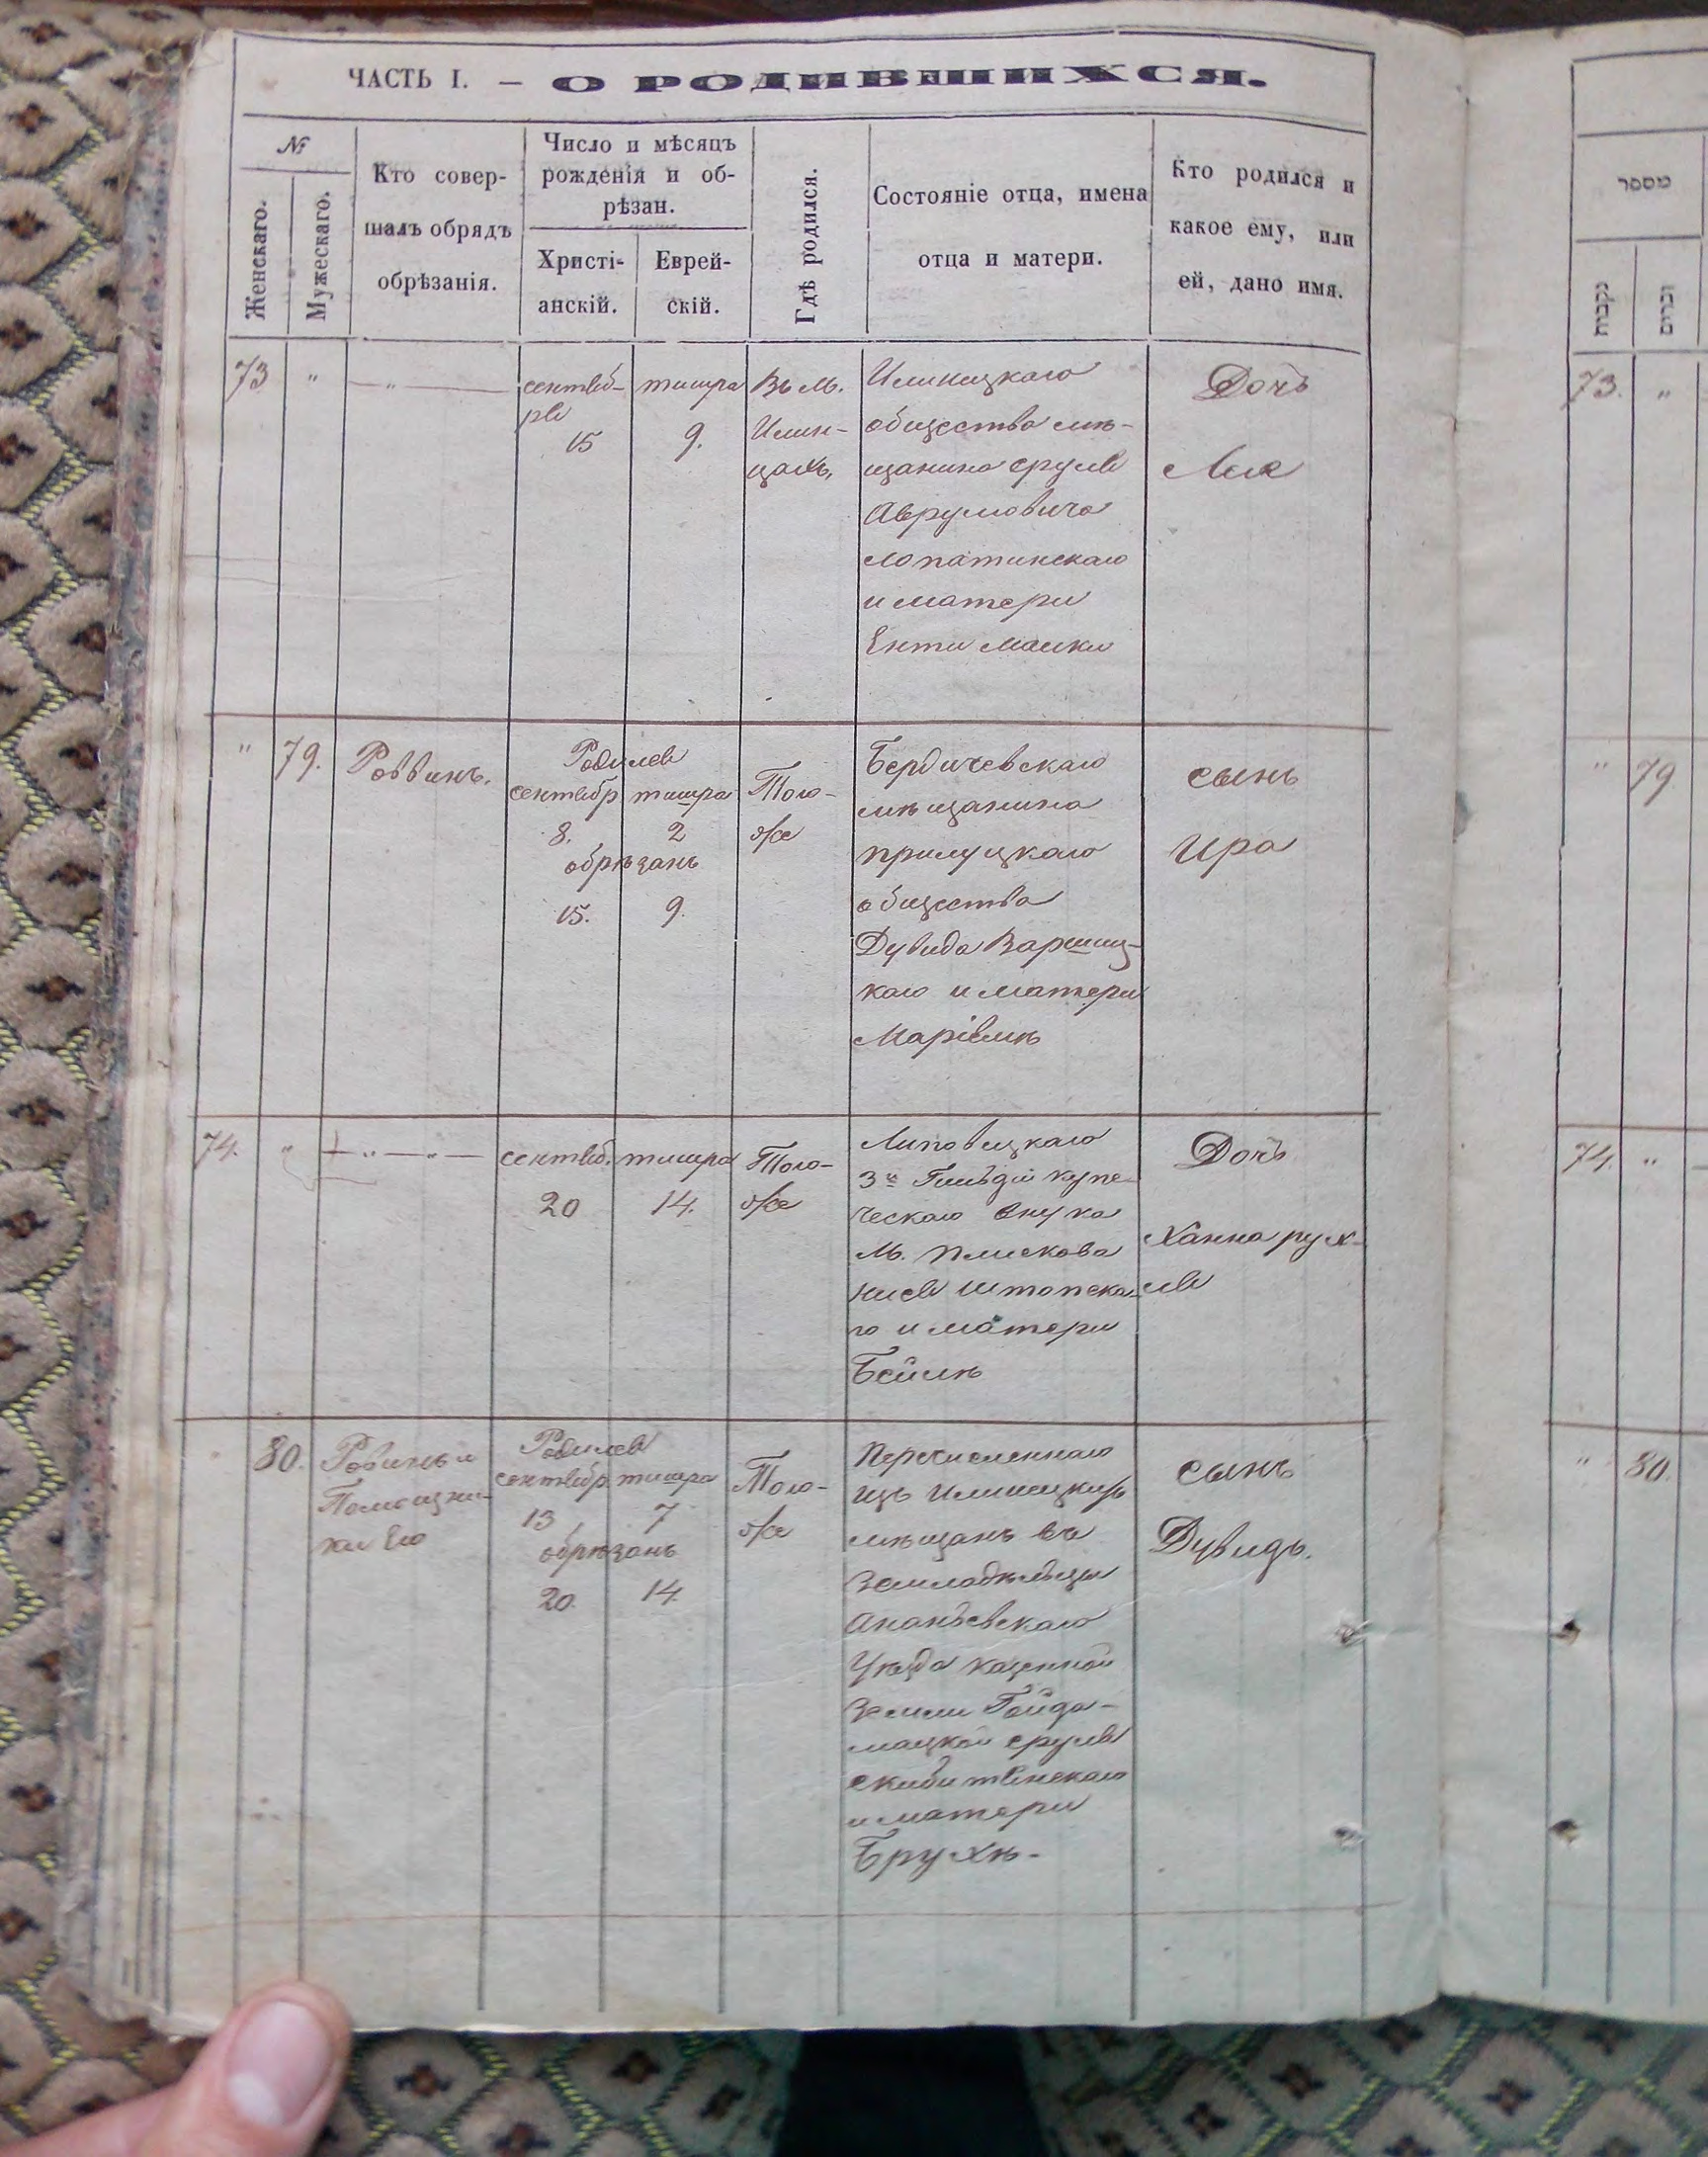 ЧАСТЬ I. — О РОДИВШИХСЯ.
№
Женскаго.
Мужескаго.
Кто совер-
шалъ обрядъ
обрѣзанія.
Число и мѣсяцъ
рожденія и об-
рѣзан.
Христі-
анскій.
Еврей-
скій.
Гдѣ родился.
Состояніе отца, имена
отца и матери.
Кто родился и
какое ему, или
ей, дано имя.
73
"
— " —
сентяб-
ря
15
тишра
9.
Въ м.
Илин-
цахъ,
Илинецкаго
общества мѣ-
щанина Сруля
Аврумовича
Лопатинскаго
и матери
Енти Малки
Дочь
Лея
"
79.
Раввинъ.
Родился
сентябр
тишра
8.
2
обрѣзанъ
15.
9.
Того-
же
Бердичевскаго
мѣщанина
прилуцкаго
общества
Дувида Варшиц-
каго и матери
Маріямѣ
сынъ
Ира
74.
"
— " — " —
сентяб.
20
тишра
14.
Того-
же
Липовецкаго
3й Гильдіи купе-
ческаго внука
М. Плискова
Штопска-
го и матери
Бейлѣ
Дочь
Ханна рух-
ля
80.
Равинъ и
Помощни-
ки Его
Родился
сентябр
тишра
13
7
обрѣзанъ
20.
14.
Того-
же
Перечисленнаго
изъ Илинецкихъ
мѣщанъ въ
Земладѣльцы
Ананьевскаго
Уѣзда казенной
Земли Гайда-
мацкой Сруля
Скибитянскаго
и матери
Брухѣ-
сынъ
Дувидъ.
מספר
נקבות
זכרים
73.
"
"
79
74.
"
"
80.